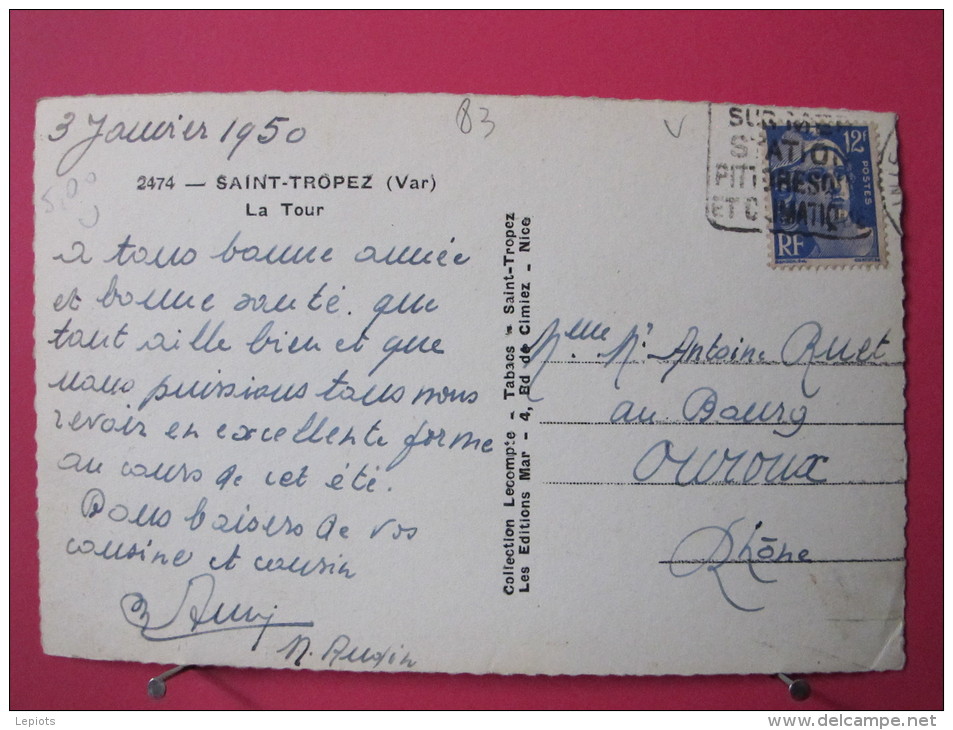 3 Janvier 1950
83
V
2474 — SAINT-TROPEZ (Var)
La Tour
5,00
à tous bonne année
et bonne santé. que
tout aille bien et que
nous puissions tous nous
revoir en excellente forme
au cours de cet été.
Bons baisers de vos
cousine et cousin
Collection Lecompte - Tabacs - Saint-Tropez
Les Editions Mar - 4, Bd de Cimiez - Nice
SUR MER
STATION
PITTORESQUE
ET CLIMATIQUE
12F
POSTES
RF
Mme Mr Antoine Ruet
au Bourg
Ouroux
Rhône
Lepiots
www.delcampe.net